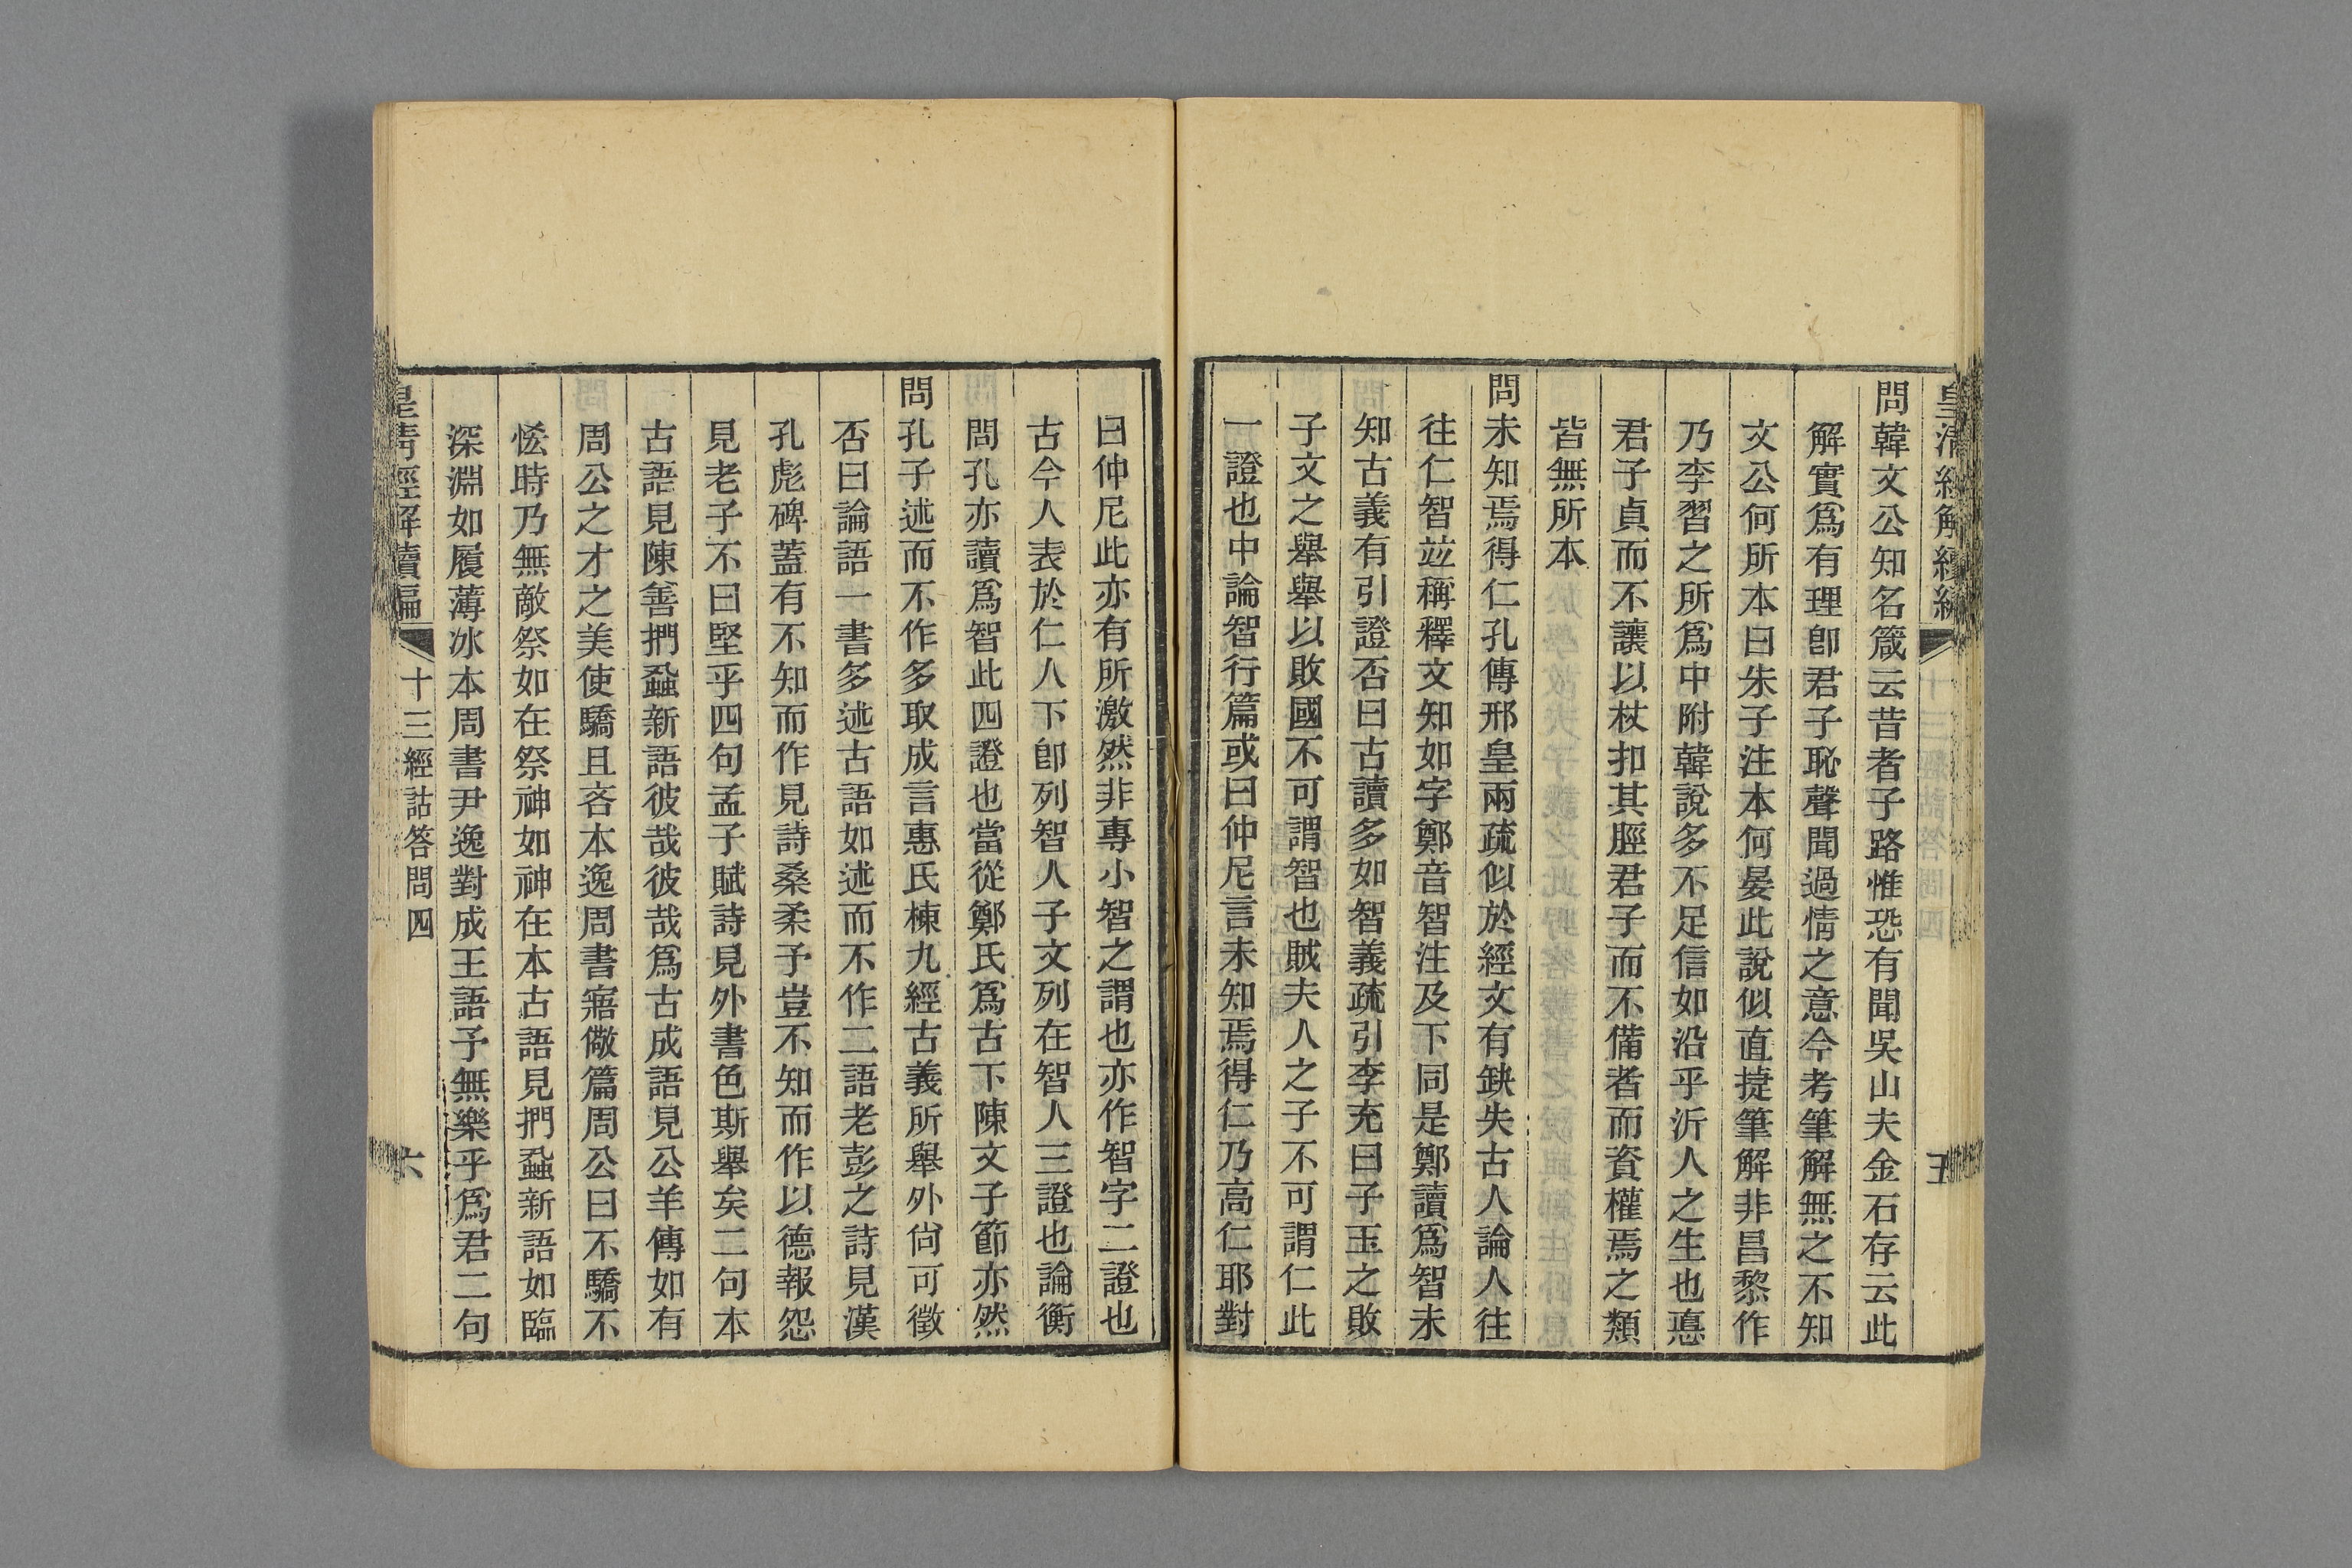 皇清經解續編
五
問韓文公知名箴云昔者子路惟恐有聞吳山夫金石存云此
解實爲有理卽君子恥聲聞過情之意今考筆解無之不知
文公何所本曰朱子注本何晏此說似直捷筆解非昌黎作
乃李習之所爲中附韓說多不足信如沿乎沂人之生也悳
君子貞而不讓以杖扣其脛君子而不備者而資權焉之類
皆無所本
問未知焉得仁孔傳邢皇兩疏似於經文有缺失古人論人往
往仁智竝稱釋文知如字鄭音智注及下同是鄭讀爲智未
知古義有引證否曰古讀多如智義疏引李充曰子玉之敗
子文之舉舉以敗國不可謂智也賊夫人之子不可謂仁此
一證也中論智行篇或曰仲尼言未知焉得仁乃高仁耶對
曰仲尼此亦有所激然非專小智之謂也亦作智字二證也
古今人表於仁人下卽列智人子文列在智人三證也論衡
問孔亦讀爲智此四證也當從鄭氏爲古下陳文子節亦然
問孔子述而不作多取成言惠氏棟九經古義所舉外尙可徵
否曰論語一書多述古語如述而不作二語老彭之詩見漢
孔彪碑蓋有不知而作見詩桑柔予豈不知而作以德報怨
見老子不曰堅乎四句孟子賦詩見外書色斯舉矣二句本
古語見陳善捫蝨新語彼哉彼哉爲古成語見公羊傳如有
周公之才之美使驕且吝本逸周書寤儆篇周公曰不驕不
恡時乃無敵祭如在祭神如神在本古語見捫蝨新語如臨
深淵如履薄冰本周書尹逸對成王語予無樂乎爲君二句
皇清經解續編
十三經詁答問四
六